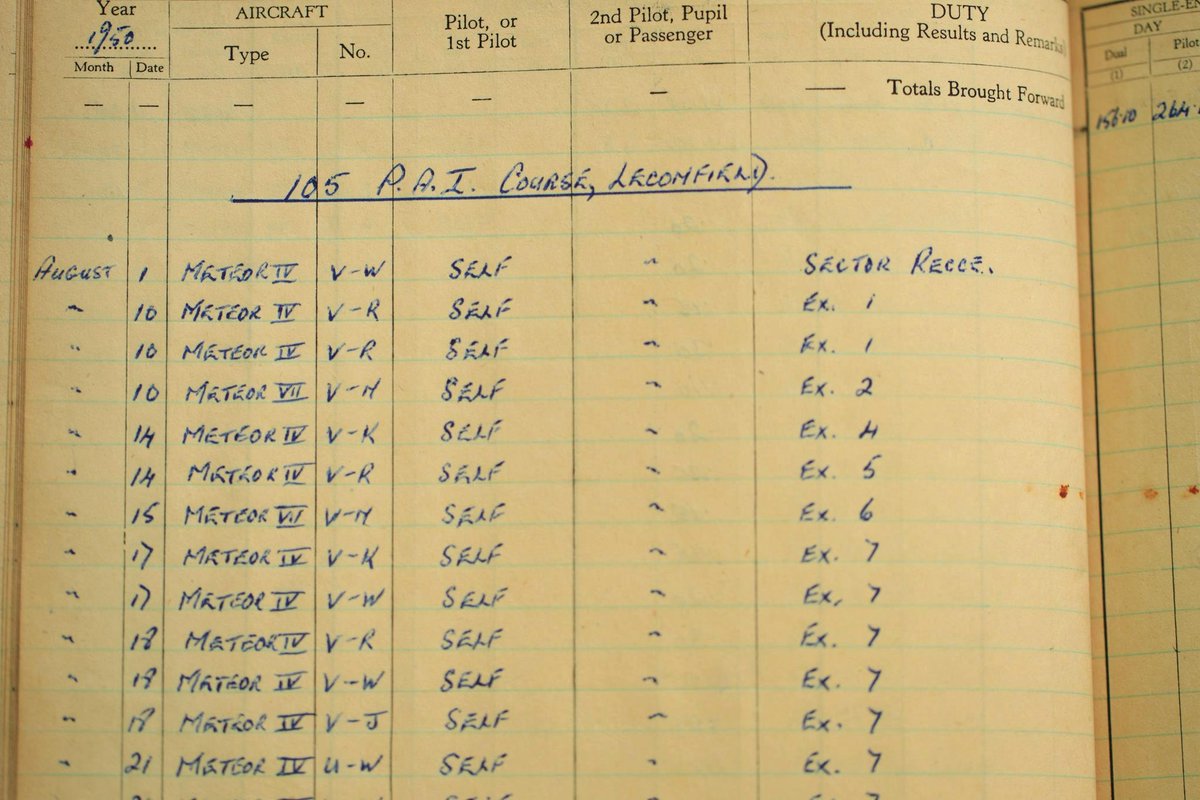 Year
1950
Month Date
AIRCRAFT
Type No.
Pilot, or
1st Pilot
2nd Pilot, Pupil
or Passenger
DUTY
(Including Results and Remarks)
— — — — — — — Totals Brought Forward
SINGLE-EN
DAY
Dual Pilot
(1) (2)
156·10 264·
105 P.A.I. COURSE, LECONFIELD.
AUGUST 1 METEOR IV V-W SELF " SECTOR RECCE.
" 10 METEOR IV V-R SELF " Ex. 1
" 10 METEOR IV V-R SELF " Ex. 1
" 10 METEOR VII V-M SELF " Ex. 2
" 14 METEOR IV V-K SELF " Ex. 4
" 14 METEOR IV V-R SELF " Ex. 5
" 15 METEOR VII V-M SELF " Ex. 6
" 17 METEOR IV V-K SELF " Ex. 7
" 17 METEOR IV V-W SELF " Ex. 7
" 18 METEOR IV V-R SELF " Ex. 7
" 18 METEOR IV V-W SELF " Ex. 7
" 18 METEOR IV V-J SELF " Ex. 7
" 21 METEOR IV U-W SELF " Ex. 7